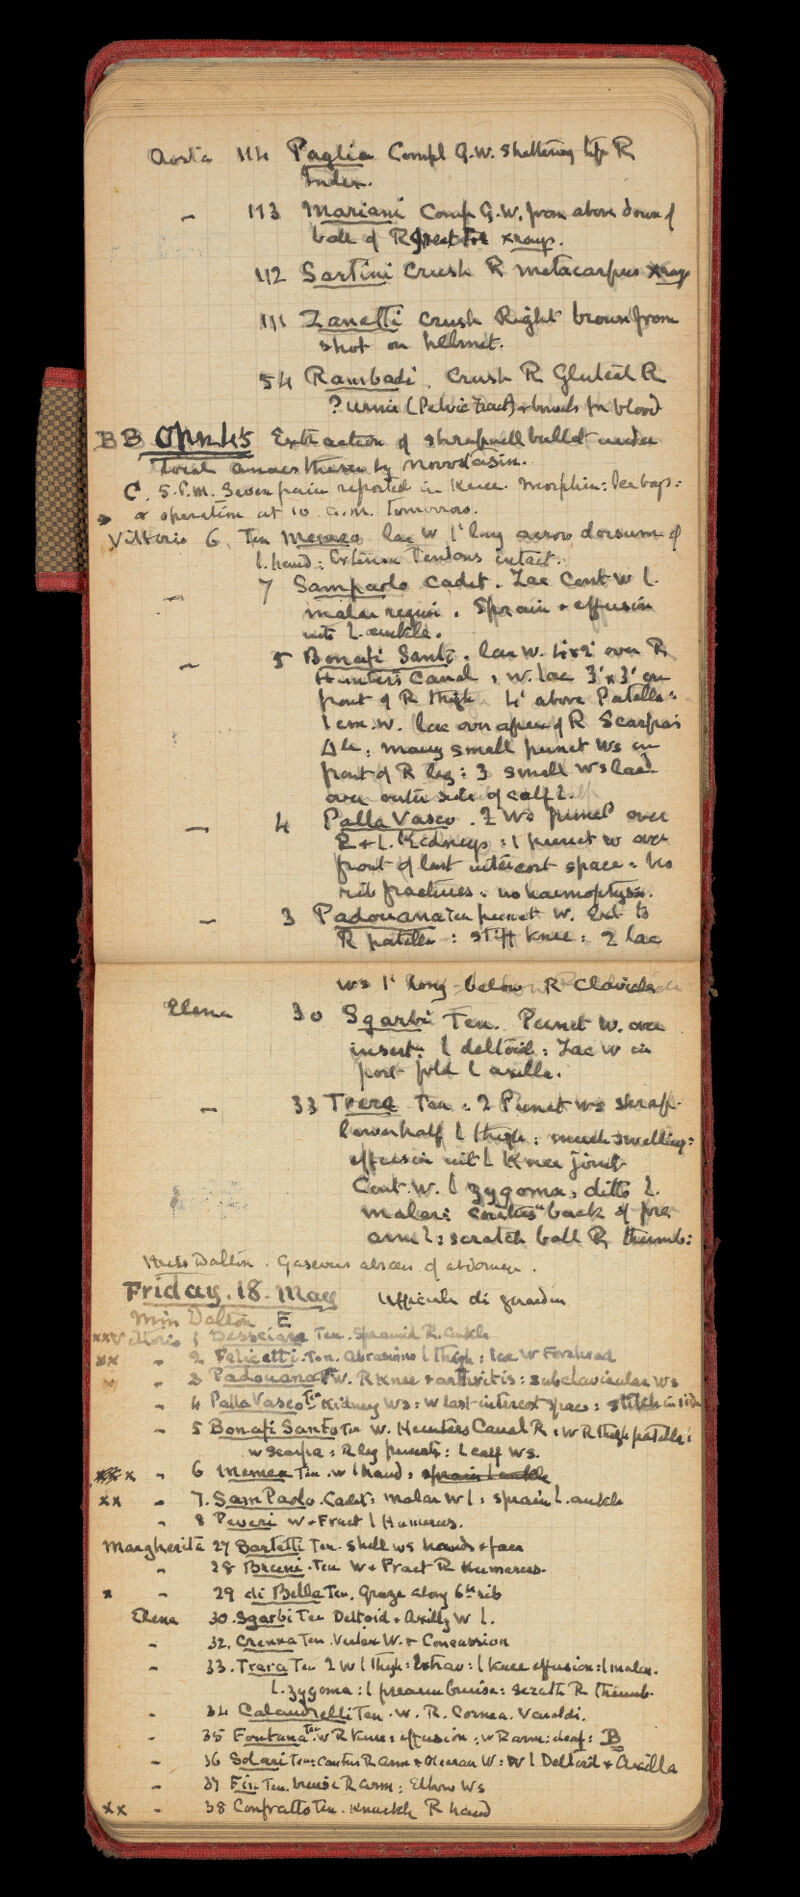 Aosta 114 Paglia Compl G.W. shattering tip R
Index.
- 113 Mariani Comp G.W. from above down of
ball of R great toe xrays.
112 Sartini Crush R metacarpus xray
111 Zanetti Crush Right brow from
shot on helmet.
54 Rambadi. Crush R Gluteal R
? urine (Pelvic fract) + bowels for blood
BB Opn 45 Extraction of shrapnell bullet under
local anaesthesia by novocain.
C. 5. P.M. Seven pain reported in Knee. Morphin: Ice bags:
& operation at 10 a.m. tomorrow.
Vittorio 6. Ten Memea lac W 1" long across dorsum of
l. hand: Extensor Tendons intact.
- 7 Sampaolo Cadet. Lac Cont W l.
malar region. Sprain + effusion
into l. ankle.
- 5 Bonafi Santo. lac w. 4x2" over R
Hunters Canal: w. lac 3"x3" on
front of R thigh 4" above Patella:
1 cm. w. lac over apex of R Scarpa's
Δle: many small punct ws on
front of R leg: 3 small ws lac
over outer side of calf l.
- 4 Palla Vasco. 2 Ws punct over
R + L. Kidneys: 1 punct w over
front of last intercost space: no
rib fractures. no haemoptysis.
- 3 Padouana Ten punct W. Ext to
R patella: stiff knee: 2 lac
ws 1" long below R Clavicle
Elena 30 Sgarbi Ten. Punct W. over
insertn l deltoid: Lac W in
post fold l axilla.
- 33 Trera Ten: 2 Punct ws shrap
lower half l thigh: much swelling:
effusion into l Knee joint
Cont. W. l zygoma: ditto l.
malar: contusn back of fore
arm l: scratch ball R thumb:
Miss Dalton. Gaseous abscess of abdomen.
Friday. 18. May Ufficiale di guardia
Miss Dalton E
xxVittorio 1 Desseiara Ten. Sprained R. ankle
xx - 2 Felicetti. Ten. abrasions l thigh: lac w Forehead
- 3 Padouana Ten w. R Knee + arthritis: subclavicular ws
- 4 Palla Vasco Ten Kidney Ws: w last intercost space: stitch in side
- 5 Bonafi Santo Ten w. Hunters Canal R: w R thigh patella:
w scarpa: R leg puncts: l calf ws.
x - 6 Memea Ten. w l hand: sprain l ankle
xx - 7. SamPaolo. Cadet: malar W l: sprain l. ankle
- 8 Peveri w + Fract l Humerus.
Margherita 27 Bartetti Ten. Shell ws hands + face
- 28 Bruni. Ten W + Fract R Humerus.
x - 29 di Bella Ten. Graze along 6th rib
Elena 30. Sgarbi Ten Deltoid + Axilla W l.
- 32. Crenna Ten. Vertex W. + Concussion
- 33. Trera Ten 2 w l thigh: Extrav: l knee effusion: l malar.
l. zygoma: l forearm bruise: scratch R thumb.
- 34 Calandrelli Ten. w. R. Cornea. Varaldi.
- 35 Fontana Ten w R Knee: effusion: w R arm: deaf: B
- 36 Solari Ten: Contus R arm + Olecran W: W l Deltoid + Axilla
- 37 Fin Ten. bruise R arm: Elbow Ws
xx - 38 Confratto Ten. Knuckle R hand